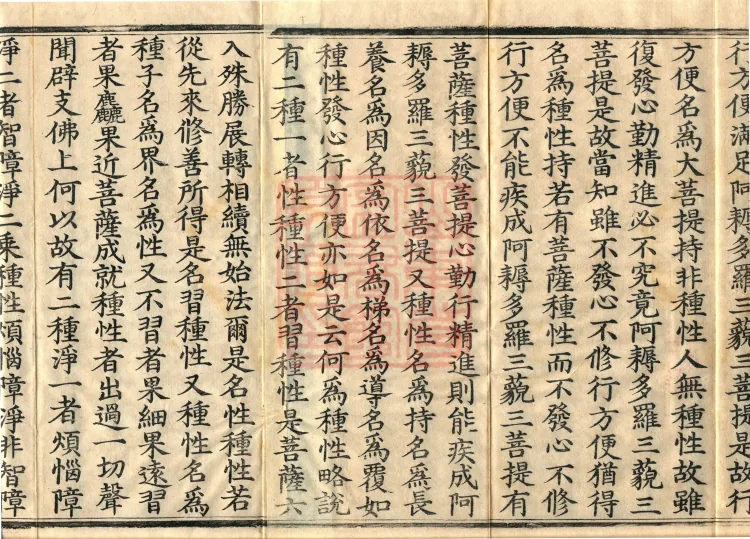 行方便滿足阿耨多羅三藐三菩提是故行
方便名爲大菩提持非種性人無種性故雖
復發心勤精進必不究竟阿耨多羅三藐三
菩提是故當知雖不發心不修行方便猶得
名爲種性持若有菩薩種性而不發心不修
行方便不能疾成阿耨多羅三藐三菩提有
菩薩種性發菩提心勤行精進則能疾成阿
耨多羅三藐三菩提又種性名爲持名爲長
養名爲因名爲依名爲梯名爲導名爲覆如
種性發心行方便亦如是云何爲種性略說
有二種一者性種性二者習種性是菩薩六
入殊勝展轉相續無始法爾是名性種性若
從先來修善所得是名習種性又種性名爲
種子名爲界名爲性又不習者果細果遠習
者果麤果近菩薩成就種性者出過一切聲
聞辟支佛上何以故有二種淨一者煩惱障
淨二者智障淨二乘種性煩惱障淨非智障